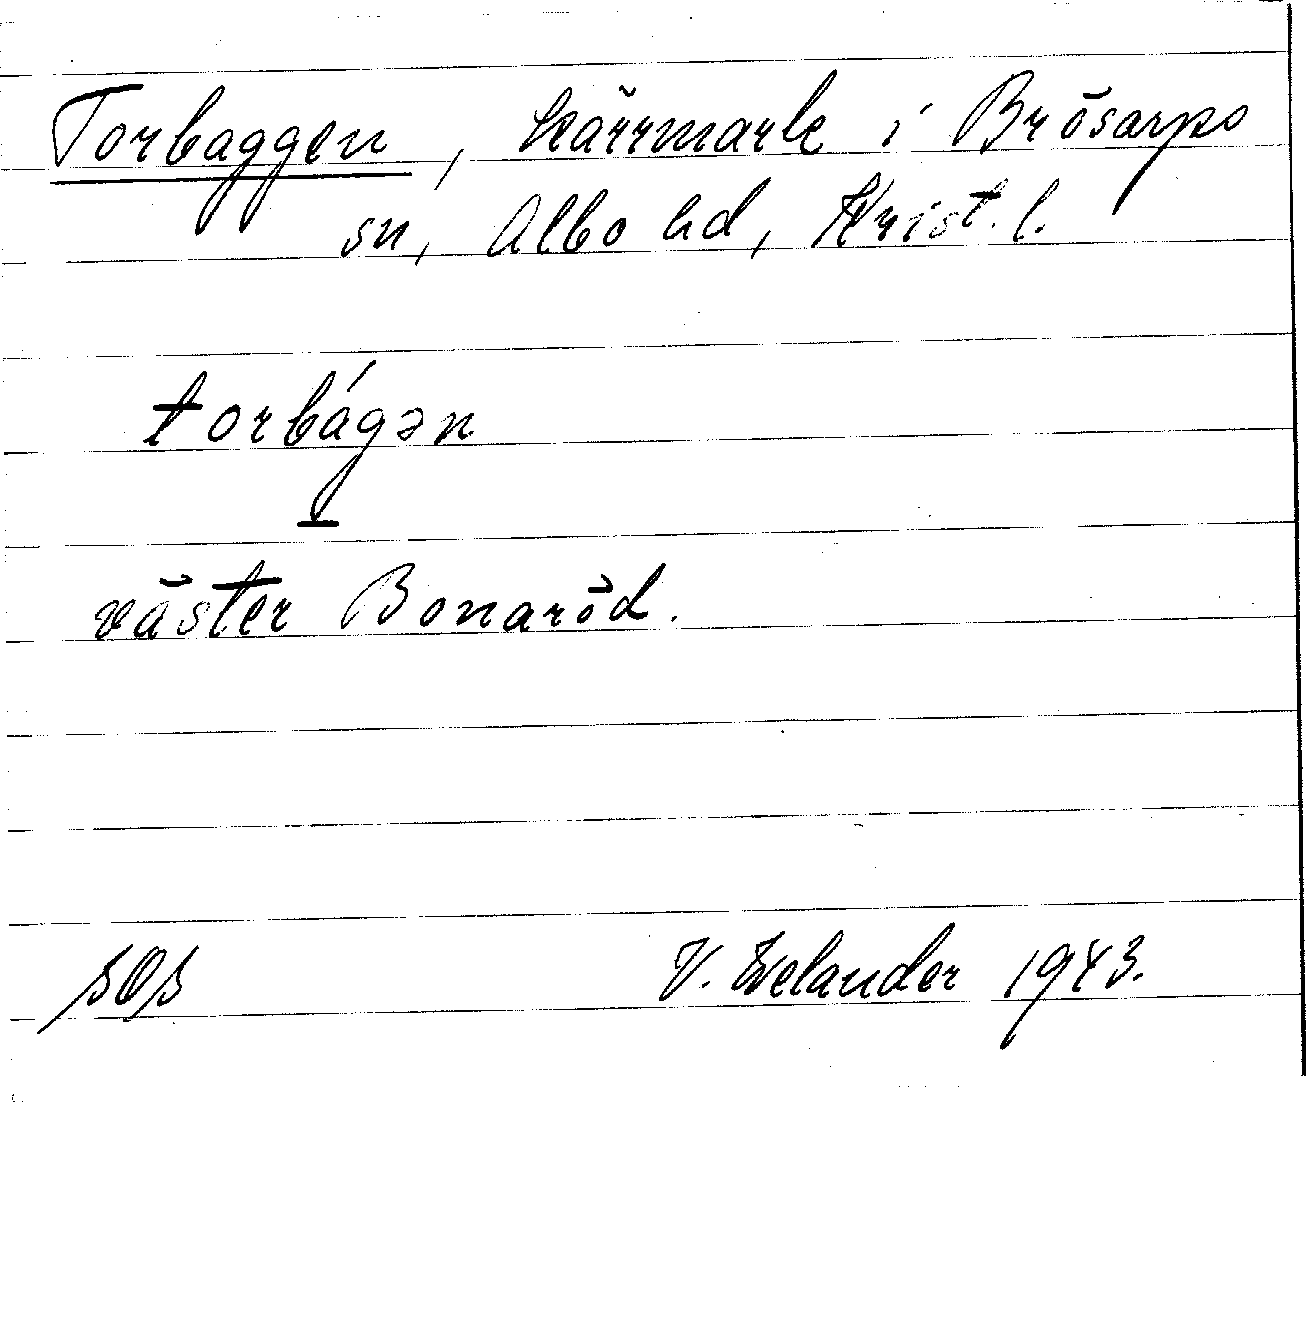 Torbaggen, kärrmark i Brösarps
sn, Albo hd, Krist. l.
torbágən
väster Bonaröd.
V. Ewelander 1943.